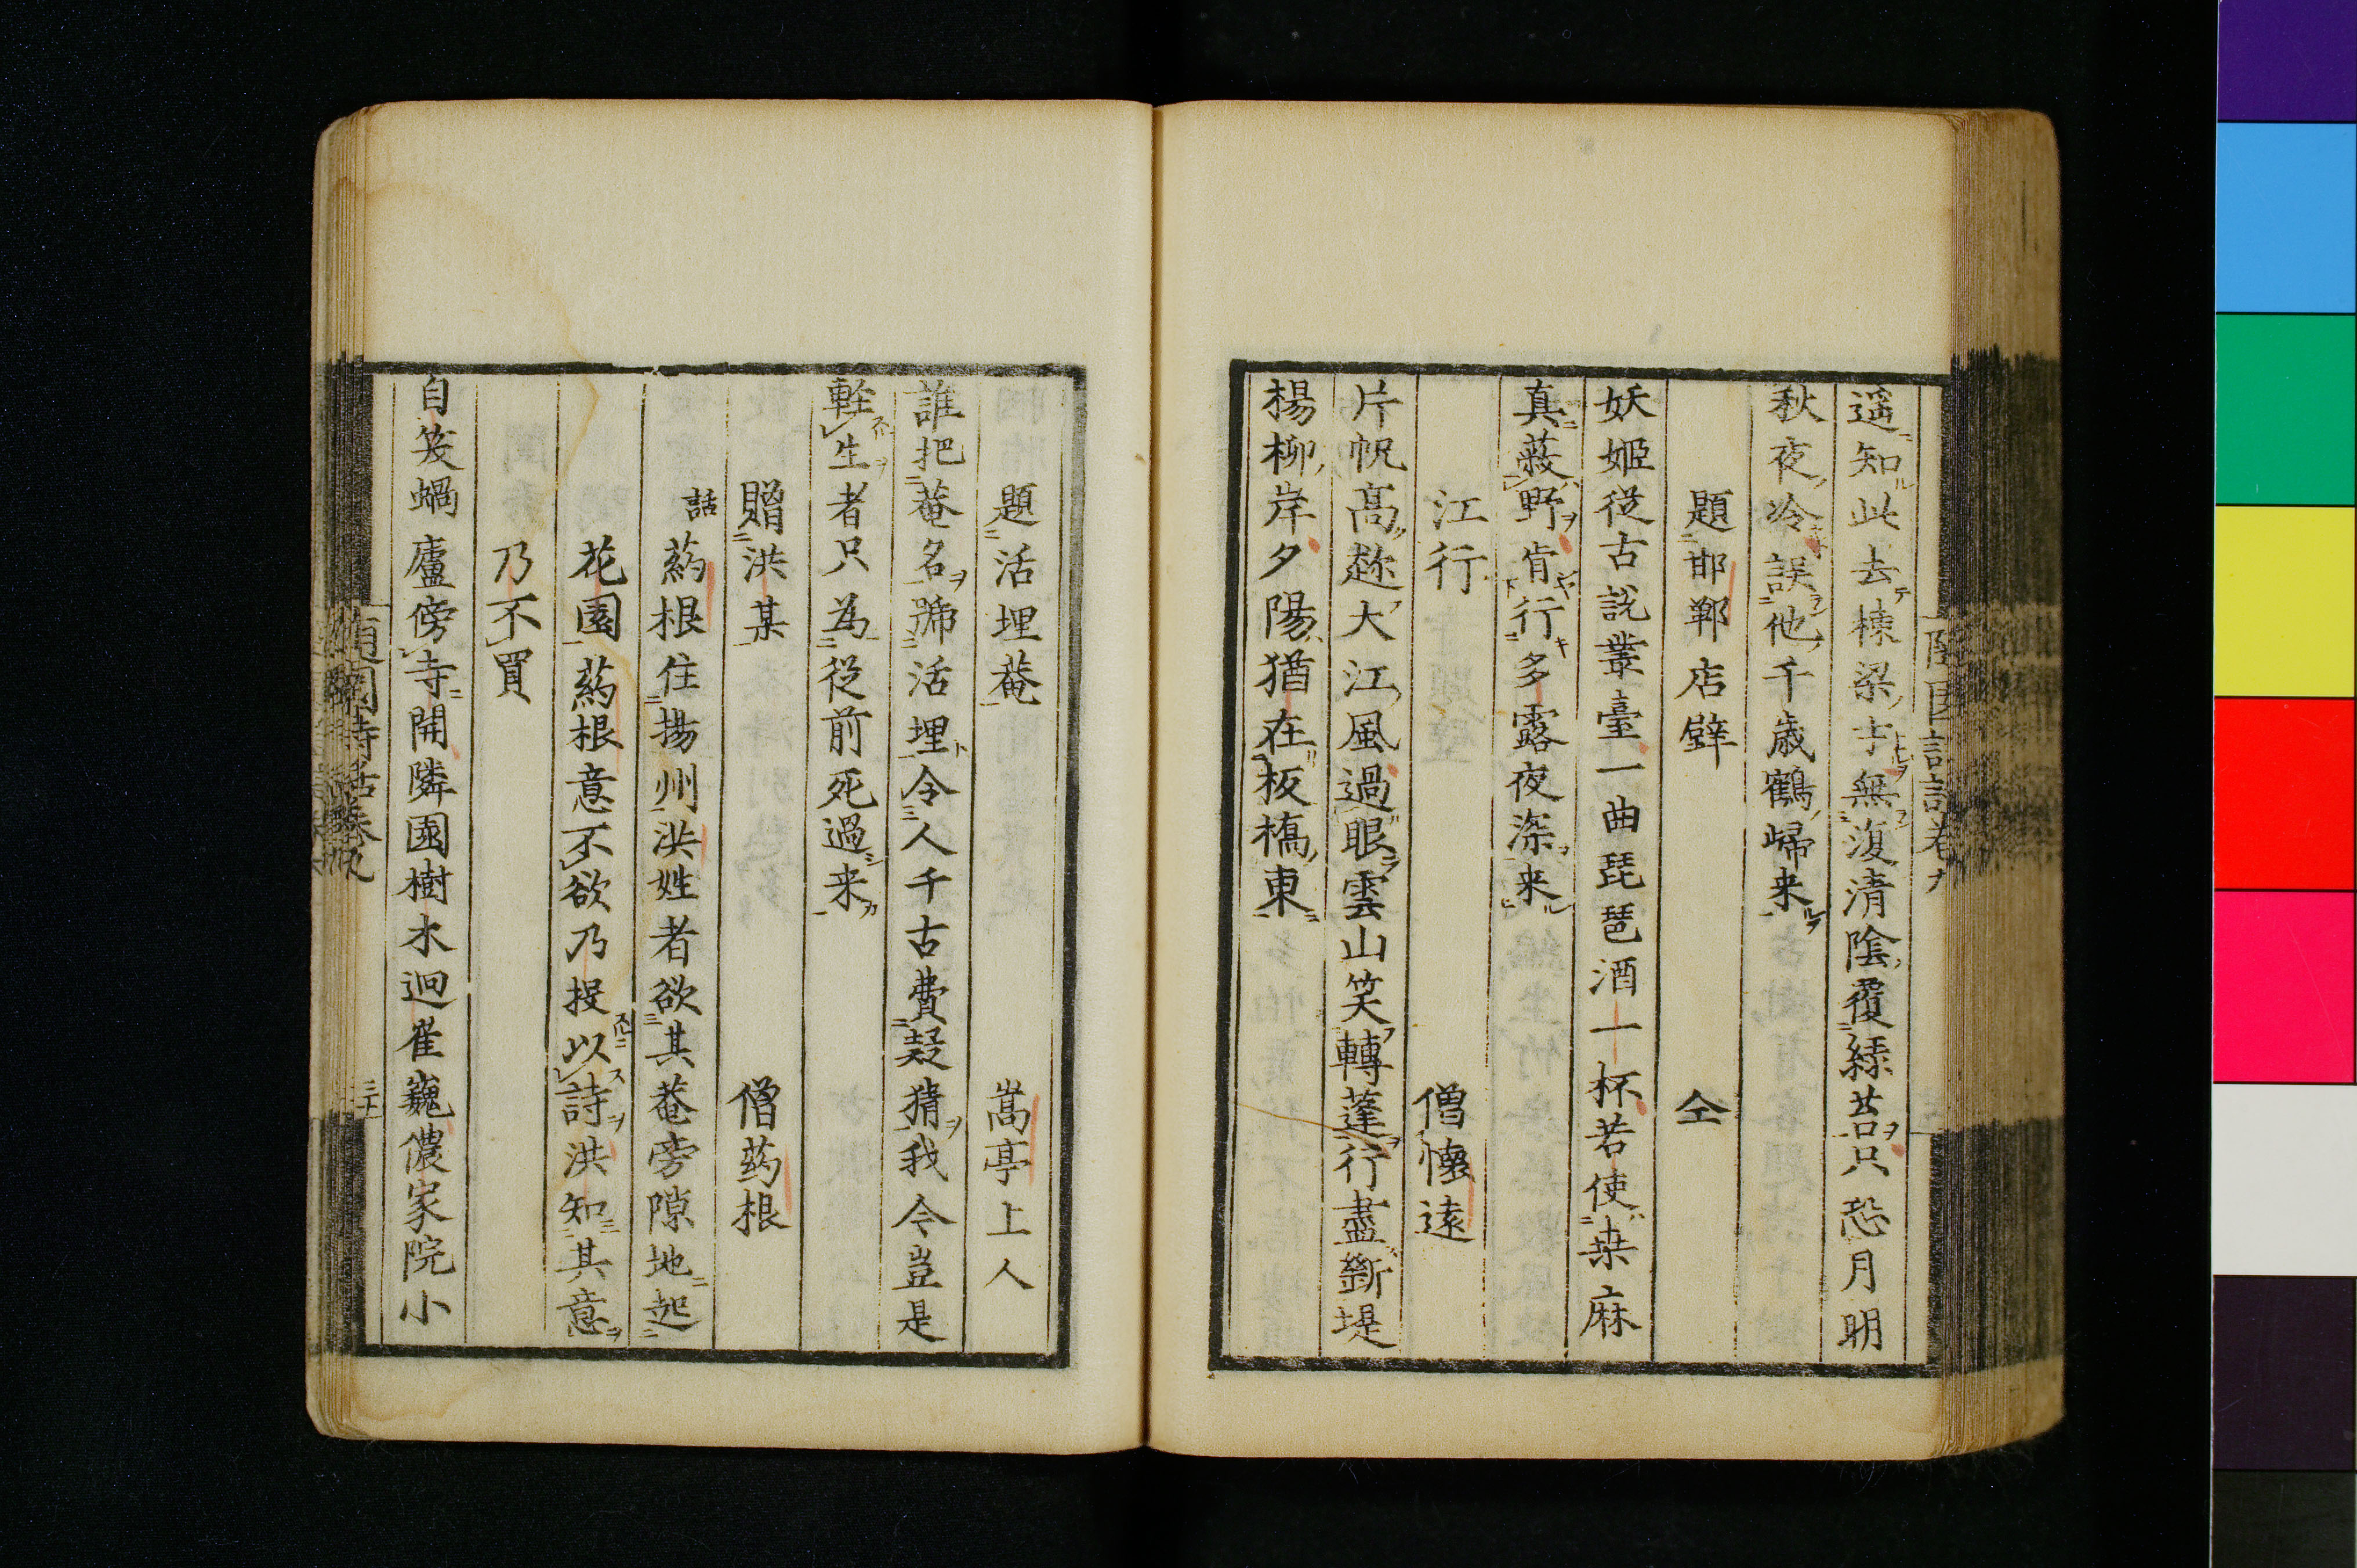 遥知此去棟梁才無復清陰覆緑苔只恐月明
秋夜冷誤他千歳鶴歸来
題邯鄲店壁 仝
妖姬従古説叢臺一曲琵琶酒一杯若使桒麻
真蔽野肯行多露夜深来
江行 僧懐遠
片帆高趂大江風過眼雲山笑轉蓬行盡斷堤
楊柳岸夕陽猶在板橋東
題活埋菴 嵩亭上人
誰把菴名號活埋令人千古費疑猜我今豈是
輕生者只為従前死過来
贈洪某 僧药根
話 药根住揚州洪姓者欲其菴旁隙地起
花園药根意不欲乃投以詩洪知其意
乃不買
自笑蝸廬傍寺開隣園樹木迥崔巍儂家院小